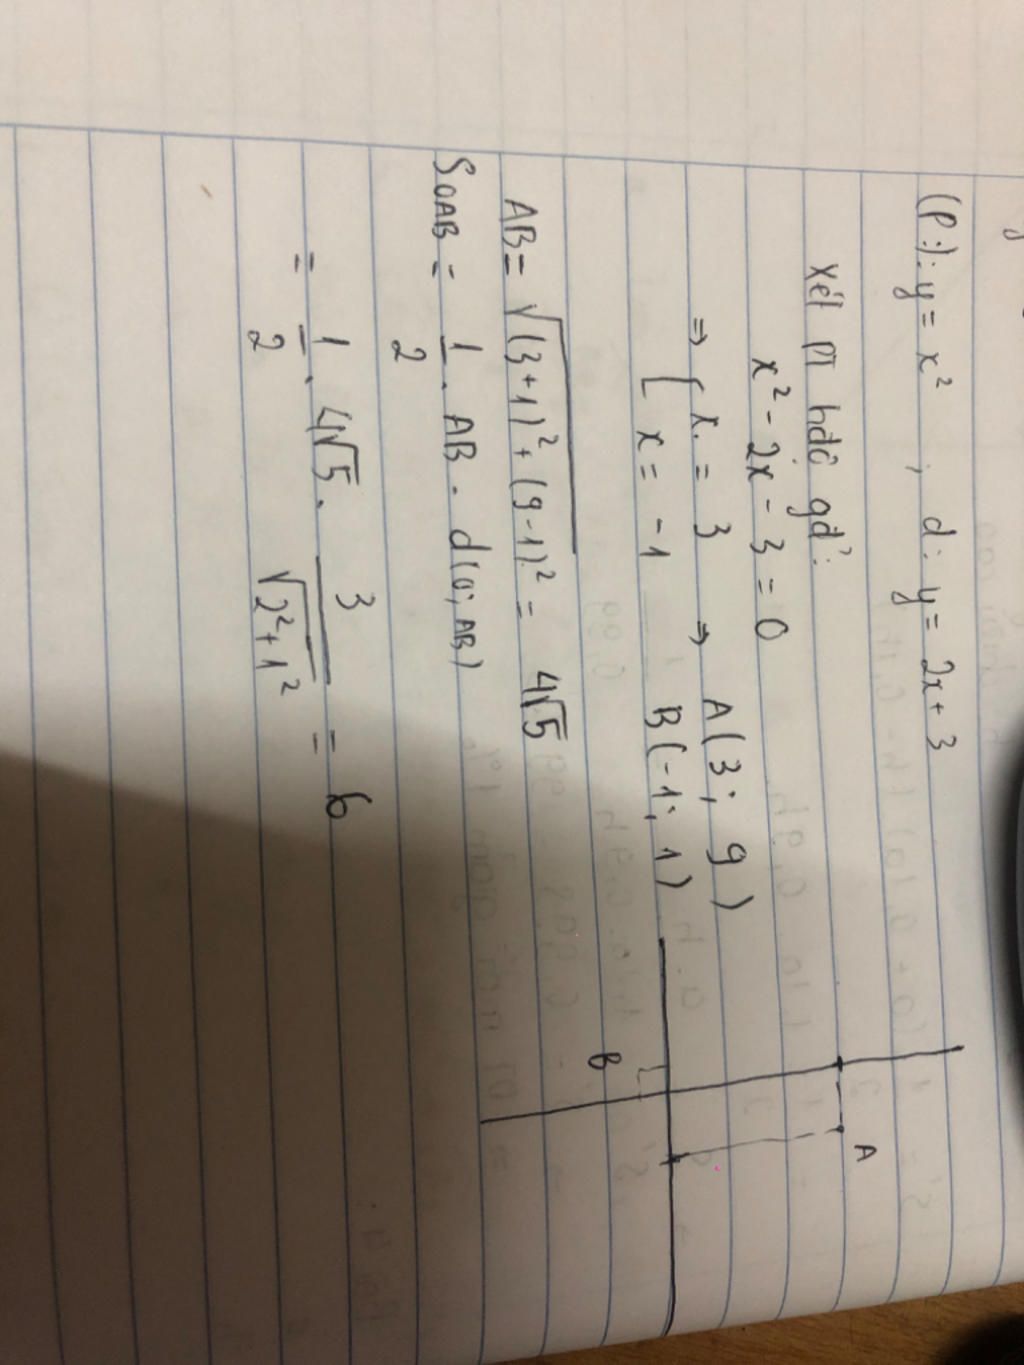 (P): y = x² ; d: y = 2x + 3
Xét pt hđộ gđ:
x² - 2x - 3 = 0
=> [ x = 3 => A(3; 9)
[ x = -1 B(-1; 1)
AB = √((3+1)² + (9-1)²) = 4√5
SOAB = 1/2 . AB . d(O; AB)
= 1/2 . 4√5 . 3/√(2²+1²) = 6
A
B